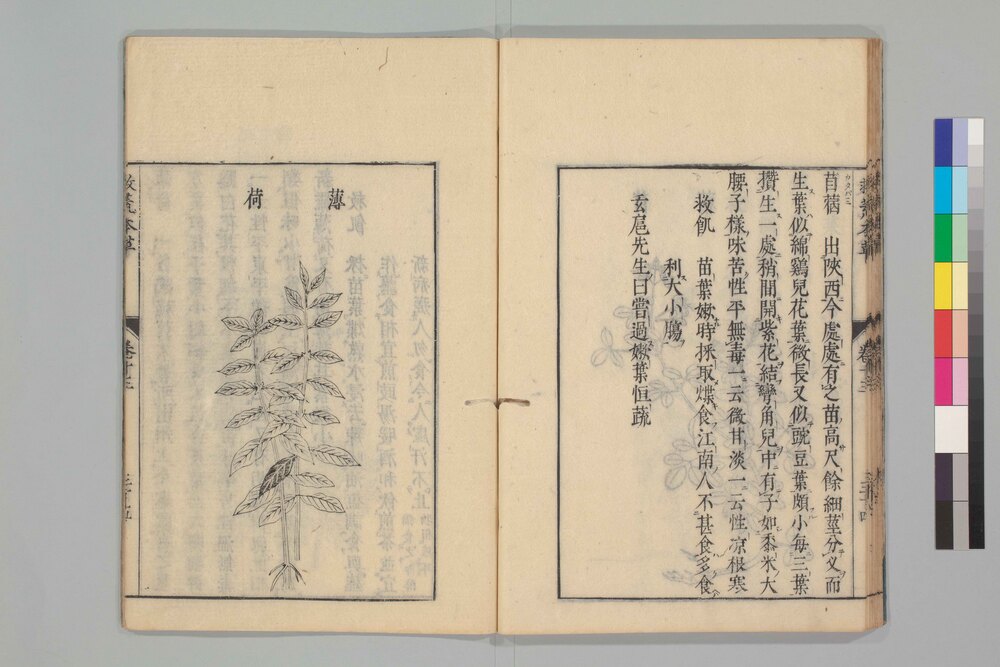 苜蓿 出陝西今處處有之苗高尺餘細莖分叉而
生葉似綿鷄兒花葉微長又似豌豆葉頗小每三葉
攢生一處稍間開紫花結彎角兒中有子如黍米大
腰子樣味苦性平無毒一云微甘淡一云性凉根寒
救飢 苗葉嫩時採取煠食江南人不甚食多食
利大小膓
玄扈先生曰嘗過嫩葉恒蔬
薄
荷
救荒本草
卷十三